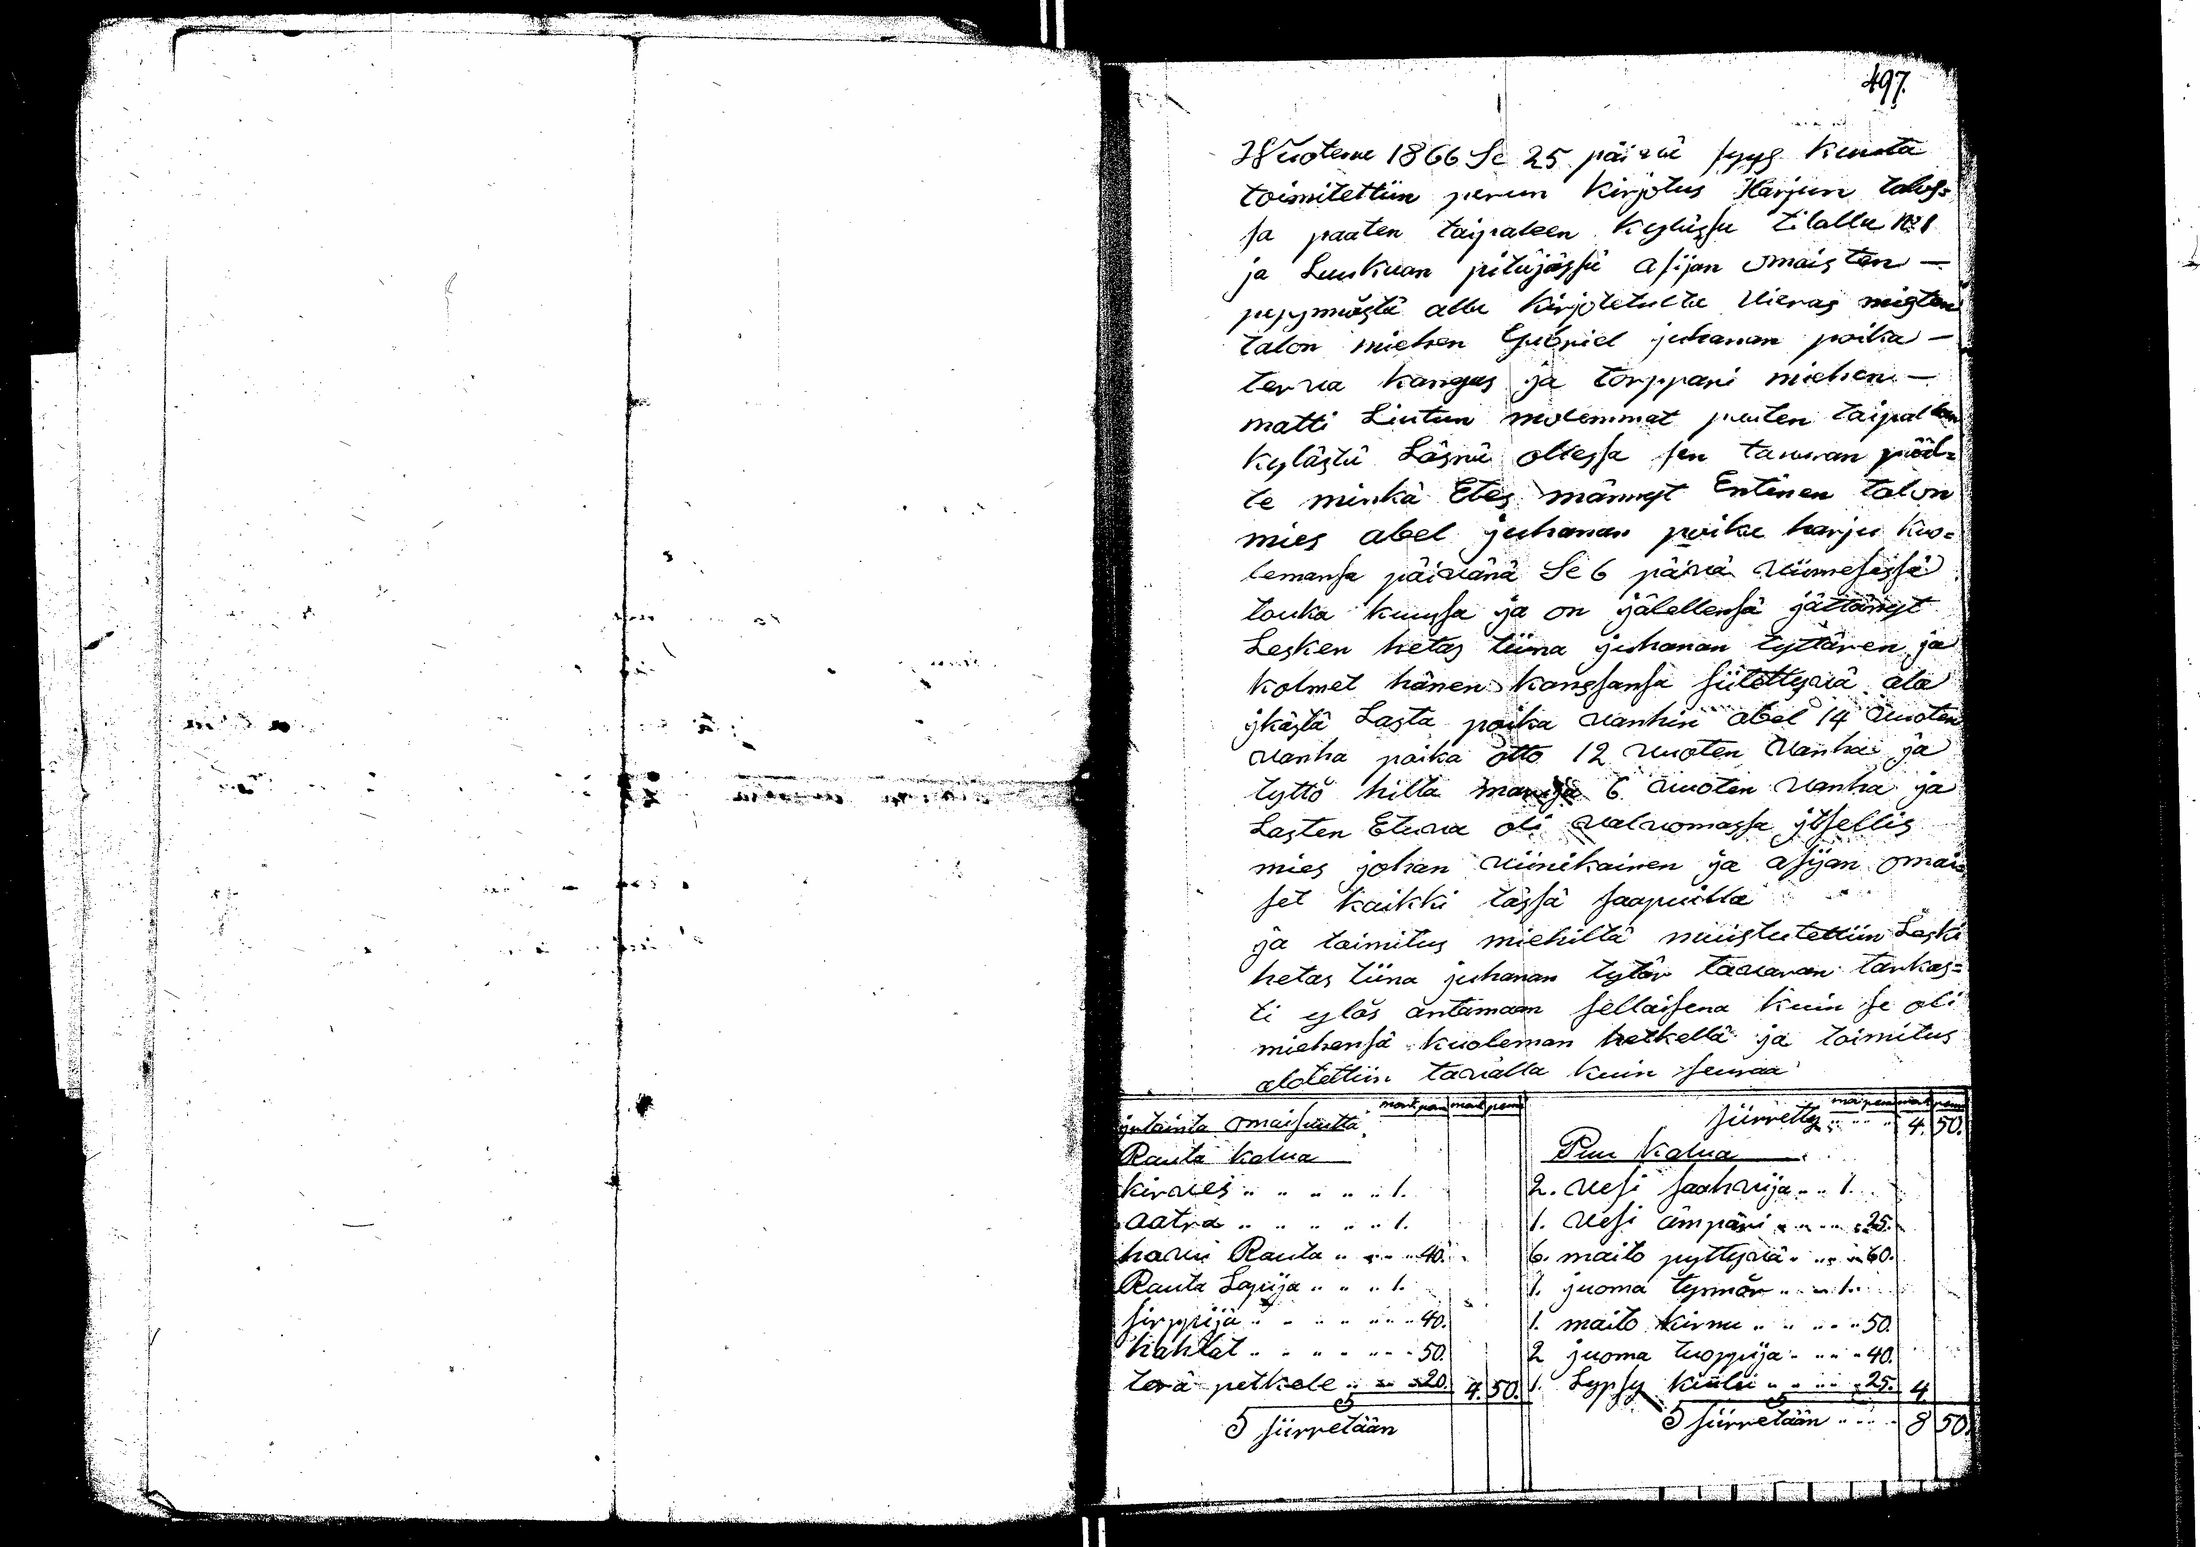 497.
Wuotena 1866 Se 25 päivä syys kuuta
toimitettiin perun kirjotus Harjun talos=
sa paaten taipaleen kylässä tilalla N:o 1
ja Laukuan pitäjässä asijan omaisten —
pyynnöstä alla kirjotetulta vieras miesten
talon miehen Gabriel juhanan poika —
terva kangas ja torppari miehen —
matti Lintun molemmat paaten taipalleen
kylästä Läsnä ollessa sen tavaran pääl=
le minkä Etes männyt Entinen talon
mies abel juhanan poika harju kuo=
lemansa päivänä Se 6 päivä viimesissä
touka kuussa ja on jälellensä jättänyt
Lesken hetas tiina juhanan tyttären ja
kolmet hänen kanssansa siitettyvä ala
ykästä Lasta poika vanhin abel 14 vuoten
vanha poika otto 12 vuoten vanha ja
tyttö hilta marija 6 vuoten vanha ja
Lasten Etuva oli valvomassa ytsellis
mies johan viinikainen ja asijan omai=
set kaikki tässä saapuilla
ja toimitus miehiltä muistutettiin Leski
hetas tiina juhanan tytär tavaran tarkas=
ti ylös antamaan sellaisena kuin se oli
miehensä kuoleman hetkellä ja toimitus
alotettiin tavalla kuin seuraa
jrtainta omaisuutta mark pen mark penn
Rauta kalua
kirves „ „ „ „ „ 1.
aatra „ „ „ „ „ 1.
harvi Rauta „ „ „ „ 40.
Rauta Lapija „ „ „ 1.
sirppijä „ „ „ „ „ „ 40.
hahlat „ „ „ „ „ „ 50.
terä petkele „ „ „ 20. 4. 50.
S siirretään
mar pen mark penn
siirretty „ „ „ 4. 50.
Puu kalua
2. vesi saahvija „ „ 1.
1. vesi ämpäri „ „ „ 25.
6. maito pyttyvä „ „ „ 60.
1. juoma tynnör „ „ „ 1.
1. maito kirnu „ „ „ „ 50.
2 juoma tuoppija „ „ „ 40.
1. Lypsy kiulu „ „ „ 25. 4
S siirretään „ „ „ 8 50.